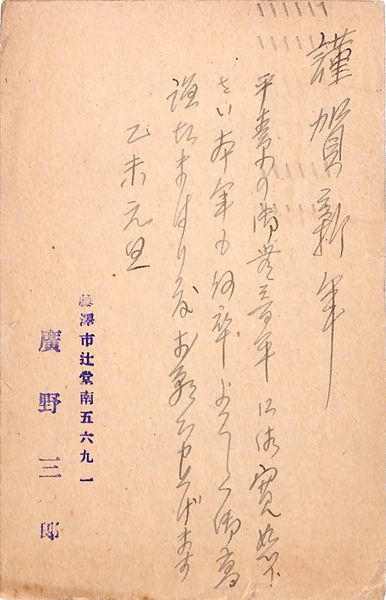 謹賀新年
平素の御無音平に御寛恕下
さい本年も何卒よろしく御高
誼 まはり お願ひ申上げます
乙未元旦
藤澤市辻堂南五六九一
廣野三郎